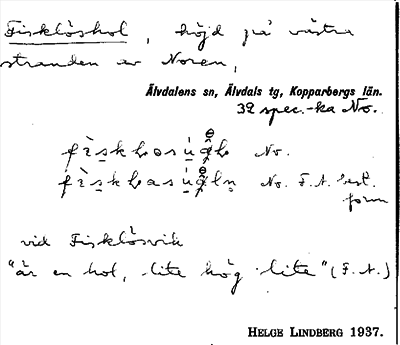 Fisklöshol, höjd på västra
stranden av Noren,
Älvdalens sn, Älvdals tg, Kopparbergs län.
32 spec.-ka No.
No.
No. F.A. best.
form
vid Fisklösvik
"är en hol, lite hög lite" (F.A.)
HELGE LINDBERG 1937.